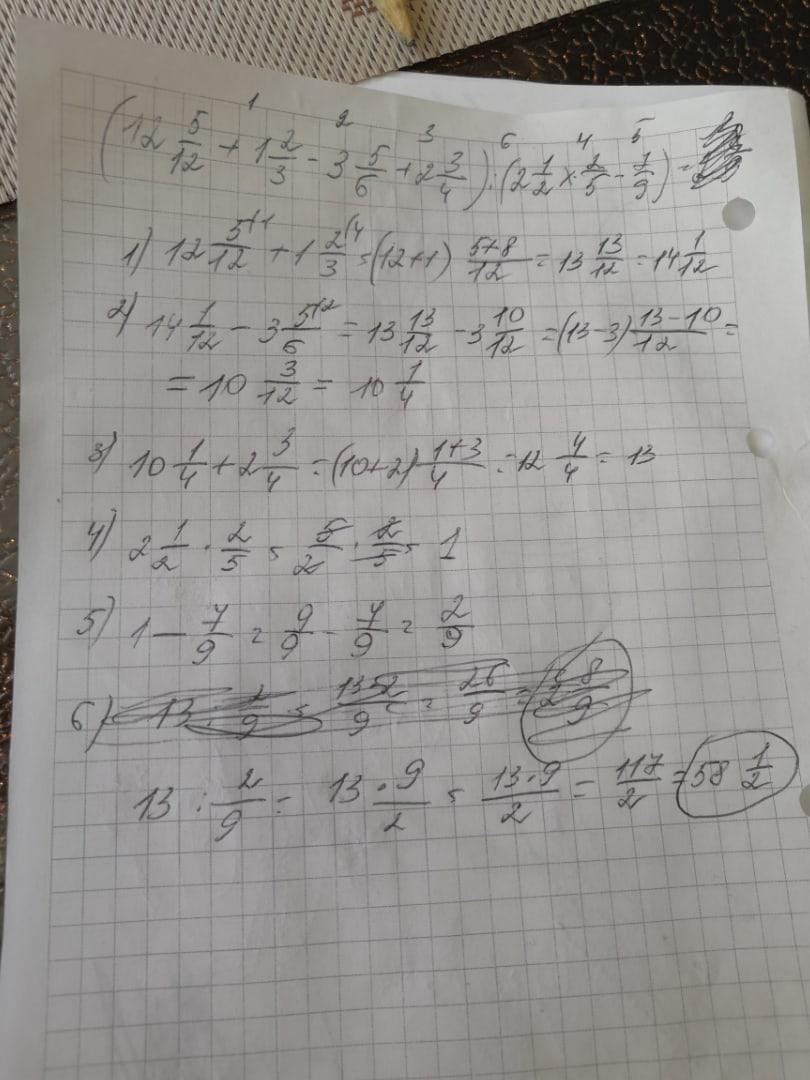 1 2 3 6 4 5
(12 5/12 + 1 2/3 - 3 5/6 + 2 3/4) : (2 1/2 × 2/5 - 7/9) =
1) 12 5/12 + 1 2/3 = (12+1) 5+8/12 = 13 13/12 = 14 1/12
2) 14 1/12 - 3 5/6 = 13 13/12 - 3 10/12 = (13-3) 13-10/12 =
= 10 3/12 = 10 1/4
3) 10 1/4 + 2 3/4 = (10+2) 1+3/4 = 12 4/4 = 13
4) 2 1/2 · 2/5 = 5/2 · 2/5 = 1
5) 1 - 7/9 = 9/9 - 7/9 = 2/9
6)
13 : 2/9 = 13 · 9/2 = 13·9/2 = 117/2 = 58 1/2